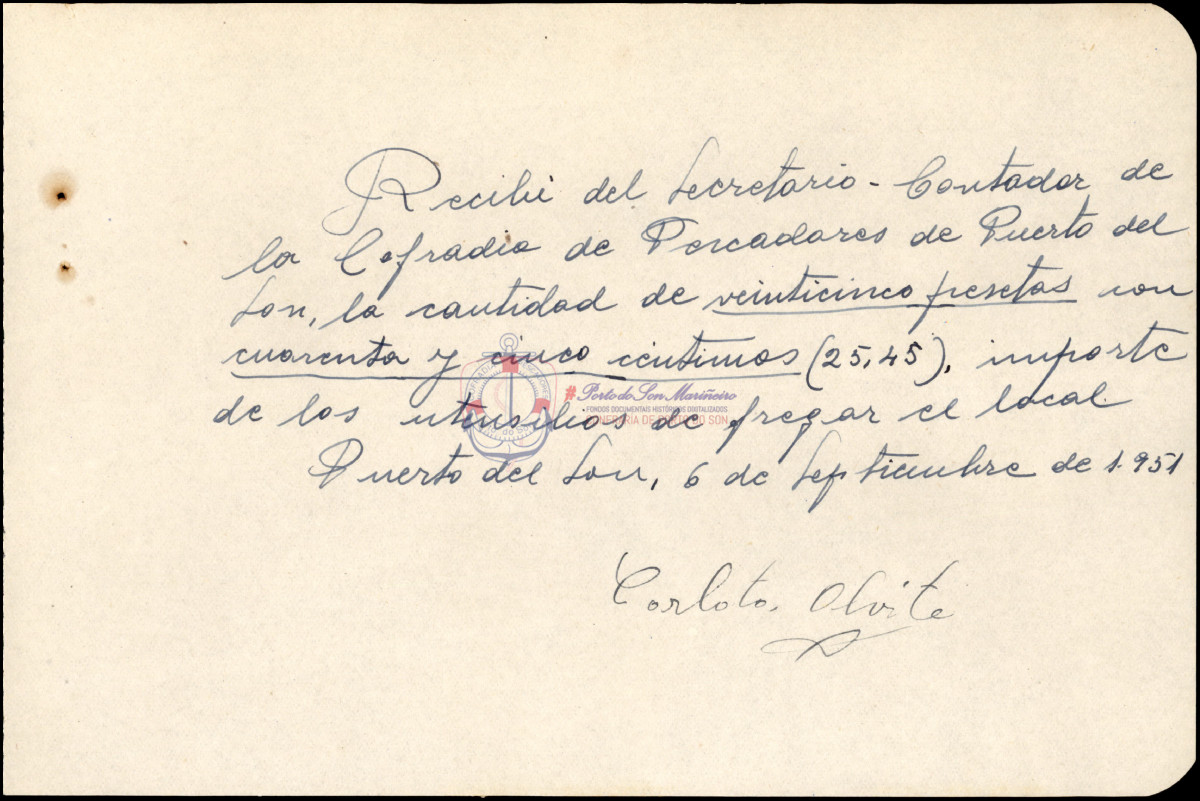 Recibí del Secretario-Contador de
la Cofradía de Pescadores de Puerto del
Son, la cantidad de veinticinco pesetas con
cuarenta y cinco céntimos (25,45), importe
#Porto do Son Mariñeiro
• FONDOS DOCUMENTAIS HISTÓRICOS DIGITALIZADOS
de los utensilios de fregar el local.
Puerto del Son, 6 de Septiembre de 1.951
Carlota Olvite